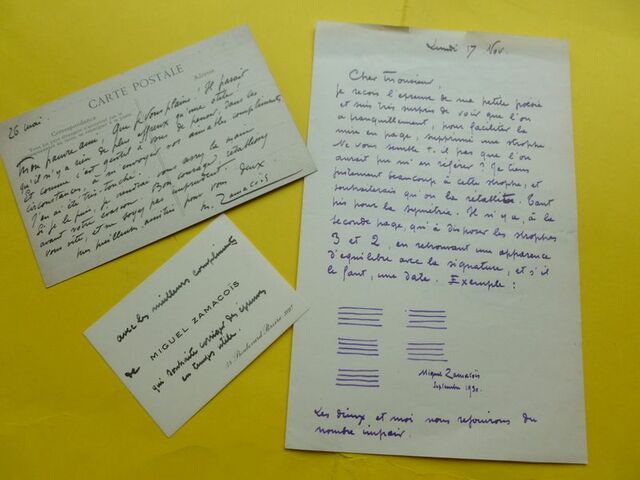 CARTE POSTALE
Correspondance
Adresse
26 mai
Mon pauvre ami. Que je vous plains ! Il paraît
qu'il n'y a rien de plus affreux qu'une otite !
Et comme c'est gentil à vous de penser, dans ces
circonstances, à m'envoyer vos aimables compliments
J'en ai été très touché.
si je le puis, je viendrai vous serrer la main
avant votre évasion. Bon courage, rétablissez
vous vite, et ne soyez pas imprudent. Deux
pas meilleures amitiés pour vous
M. Zamacoïs
avec les meilleurs compliments
de MIGUEL ZAMACOÏS
qui souhaite corriger des épreuves
en temps utile.
Boulevard
Lundi 17 Nov.
Cher Monsieur,
je reçois l'épreuve de ma petite poésie
et suis très surpris de voir que l'on
a tranquillement, pour faciliter la
mise en page, supprimé une strophe.
Ne vous semble-t-il pas que l'on
aurait pu m'en référer ? Je tiens
justement beaucoup à cette strophe, et
souhaiterais qu'on la rétablît. Tant
pis pour la symétrie. Il n'y a, à la
seconde page, qu'à disposer les strophes
3 et 2, en retrouvant une apparence
d'équilibre avec la signature, et s'il
le faut, une date. Exemple :
Miguel Zamacoïs
Septembre 1930.
Les dieux et moi nous réjouirons du
nombre impair.